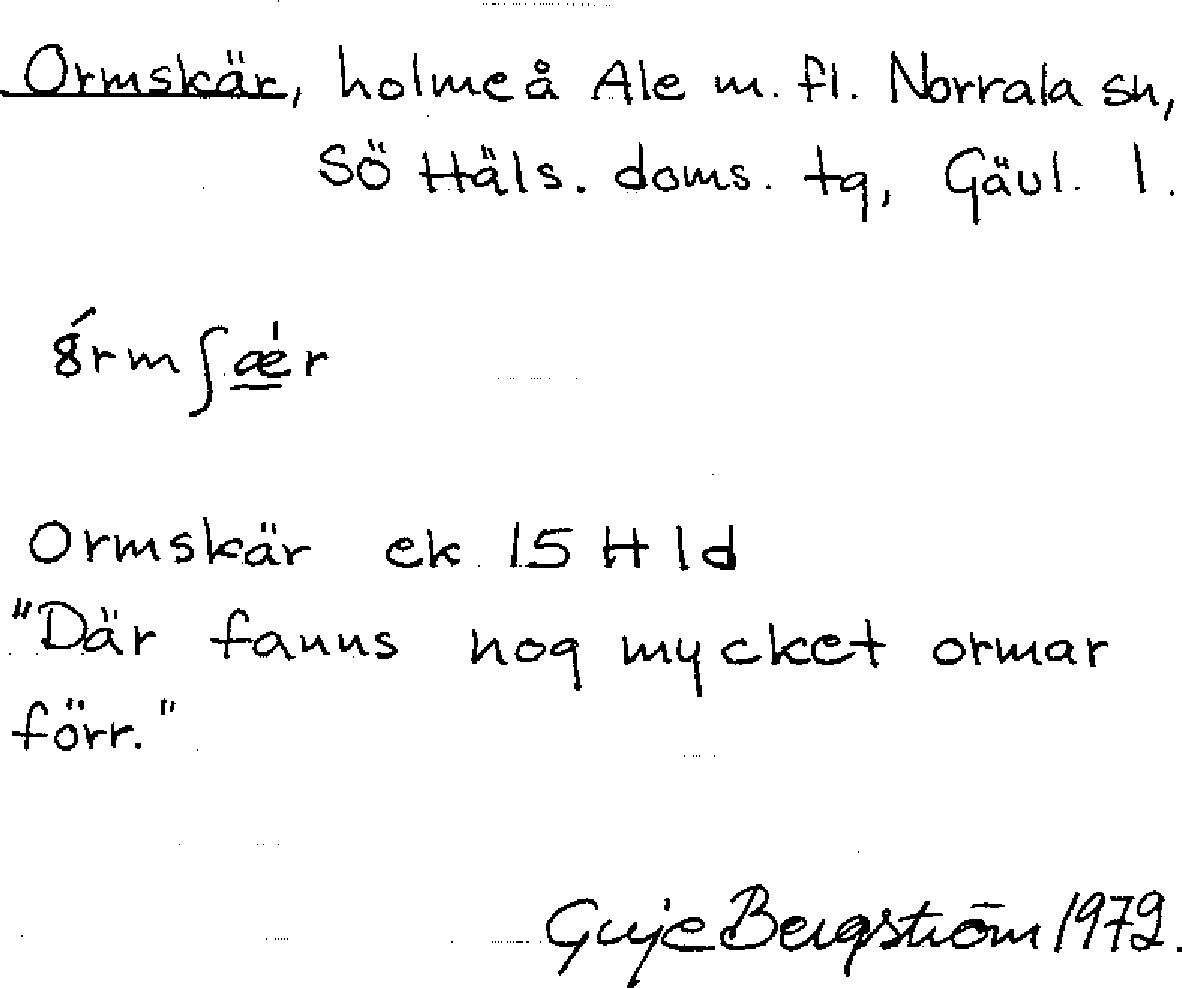 Ormskär, holme å Ale m. fl. Norrala sn,
Sö Häls. doms. tg, Gävl. l.
ormʃæ̲r
Ormskär ek 15 H 1d
"Där fanns nog mycket ormar
förr."
Guje Bergström 1972.